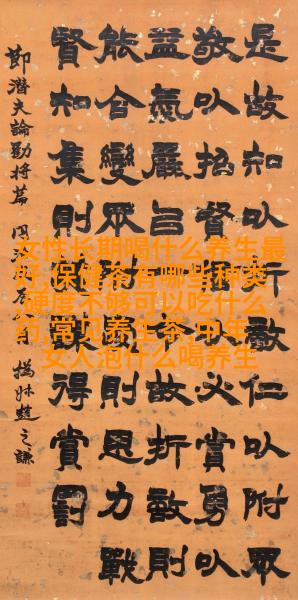 是故知㠯折敵仁㠯附眾
敬㠯招賢㠯必賞勇㠯
益氣嚴㠯令故折敵則
能合變眾附則思力戰
賢知集則得賞罰
節潛夫論勸將篇 同治 撝叔趙之謙
女性长期喝什么养生最
好,保健茶有哪些种类
,硬度不够可以吃什么
药,常见养生茶,中年
女人泡什么喝养生